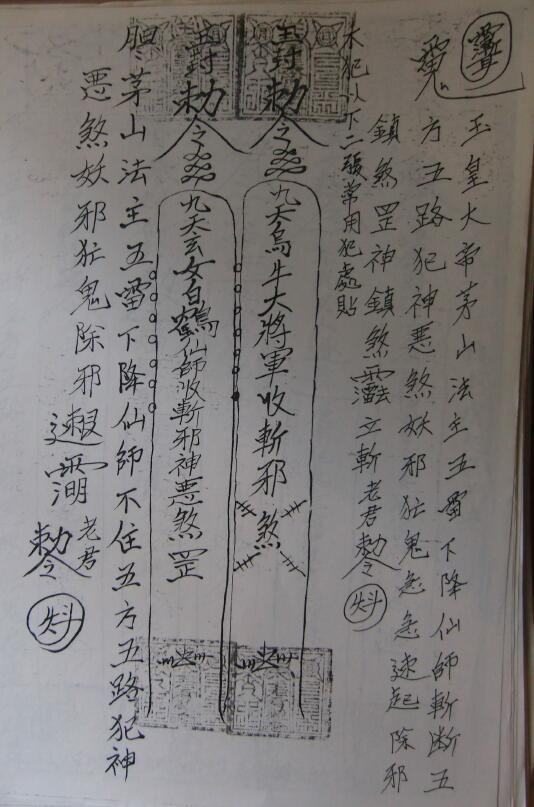 玉皇大帝茅山法主五雷下降仙師斬断五
方五路犯神惡煞妖邪犯鬼急急速起除邪
鎮煞罡神鎮煞立斬老君勅令
木犯以下二張常用犯處貼
玉封勅令
九天烏牛大將軍收斬邪煞
玉封勅令
九天玄女白鶴仙師收斬邪神惡煞罡
茅山法主五雷下降仙師不住五方五路犯神
惡煞妖邪犯鬼除邪
老君
勅令